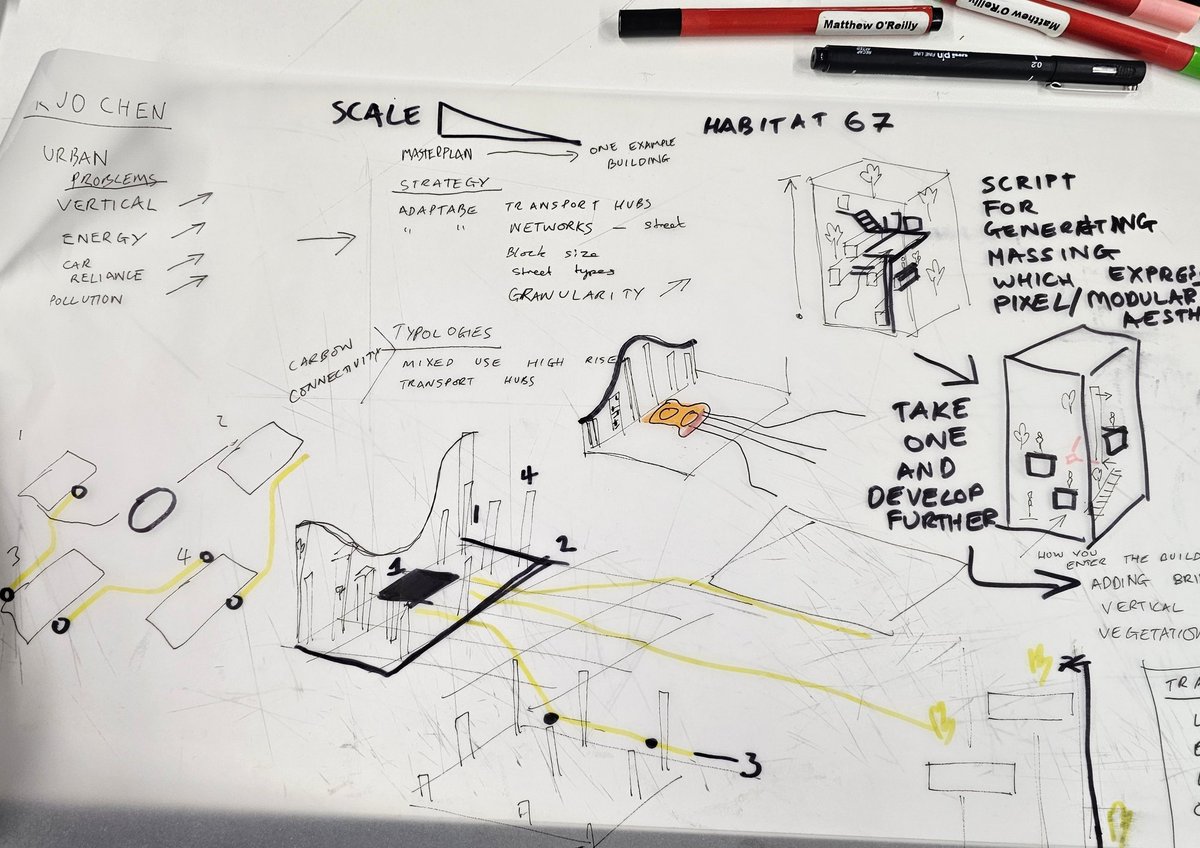 Matthew O'Reilly
Matthew O'Reilly
uni pin FINE LINE
0.2
JO CHEN
SCALE
MASTERPLAN
ONE EXAMPLE
BUILDING
HABITAT 67
URBAN
PROBLEMS
VERTICAL
ENERGY
CAR
RELIANCE
POLLUTION
STRATEGY
ADAPTABE TRANSPORT HUBS
" " NETWORKS – street
Block size
street types
GRANULARITY
CARBON
CONNECTIVITY
TYPOLOGIES
MIXED USE HIGH RISE
TRANSPORT HUBS
SCRIPT
FOR
GENERATING
MASSING
WHICH EXPRES
PIXEL/MODULAR
AESTH
TAKE
ONE
AND
DEVELOP
FURTHER
HOW YOU
ENTER THE BUILD
ADDING BRI
VERTICAL
VEGETATION
TRA
L
E
1
2
3
4
1
4
2
1
3